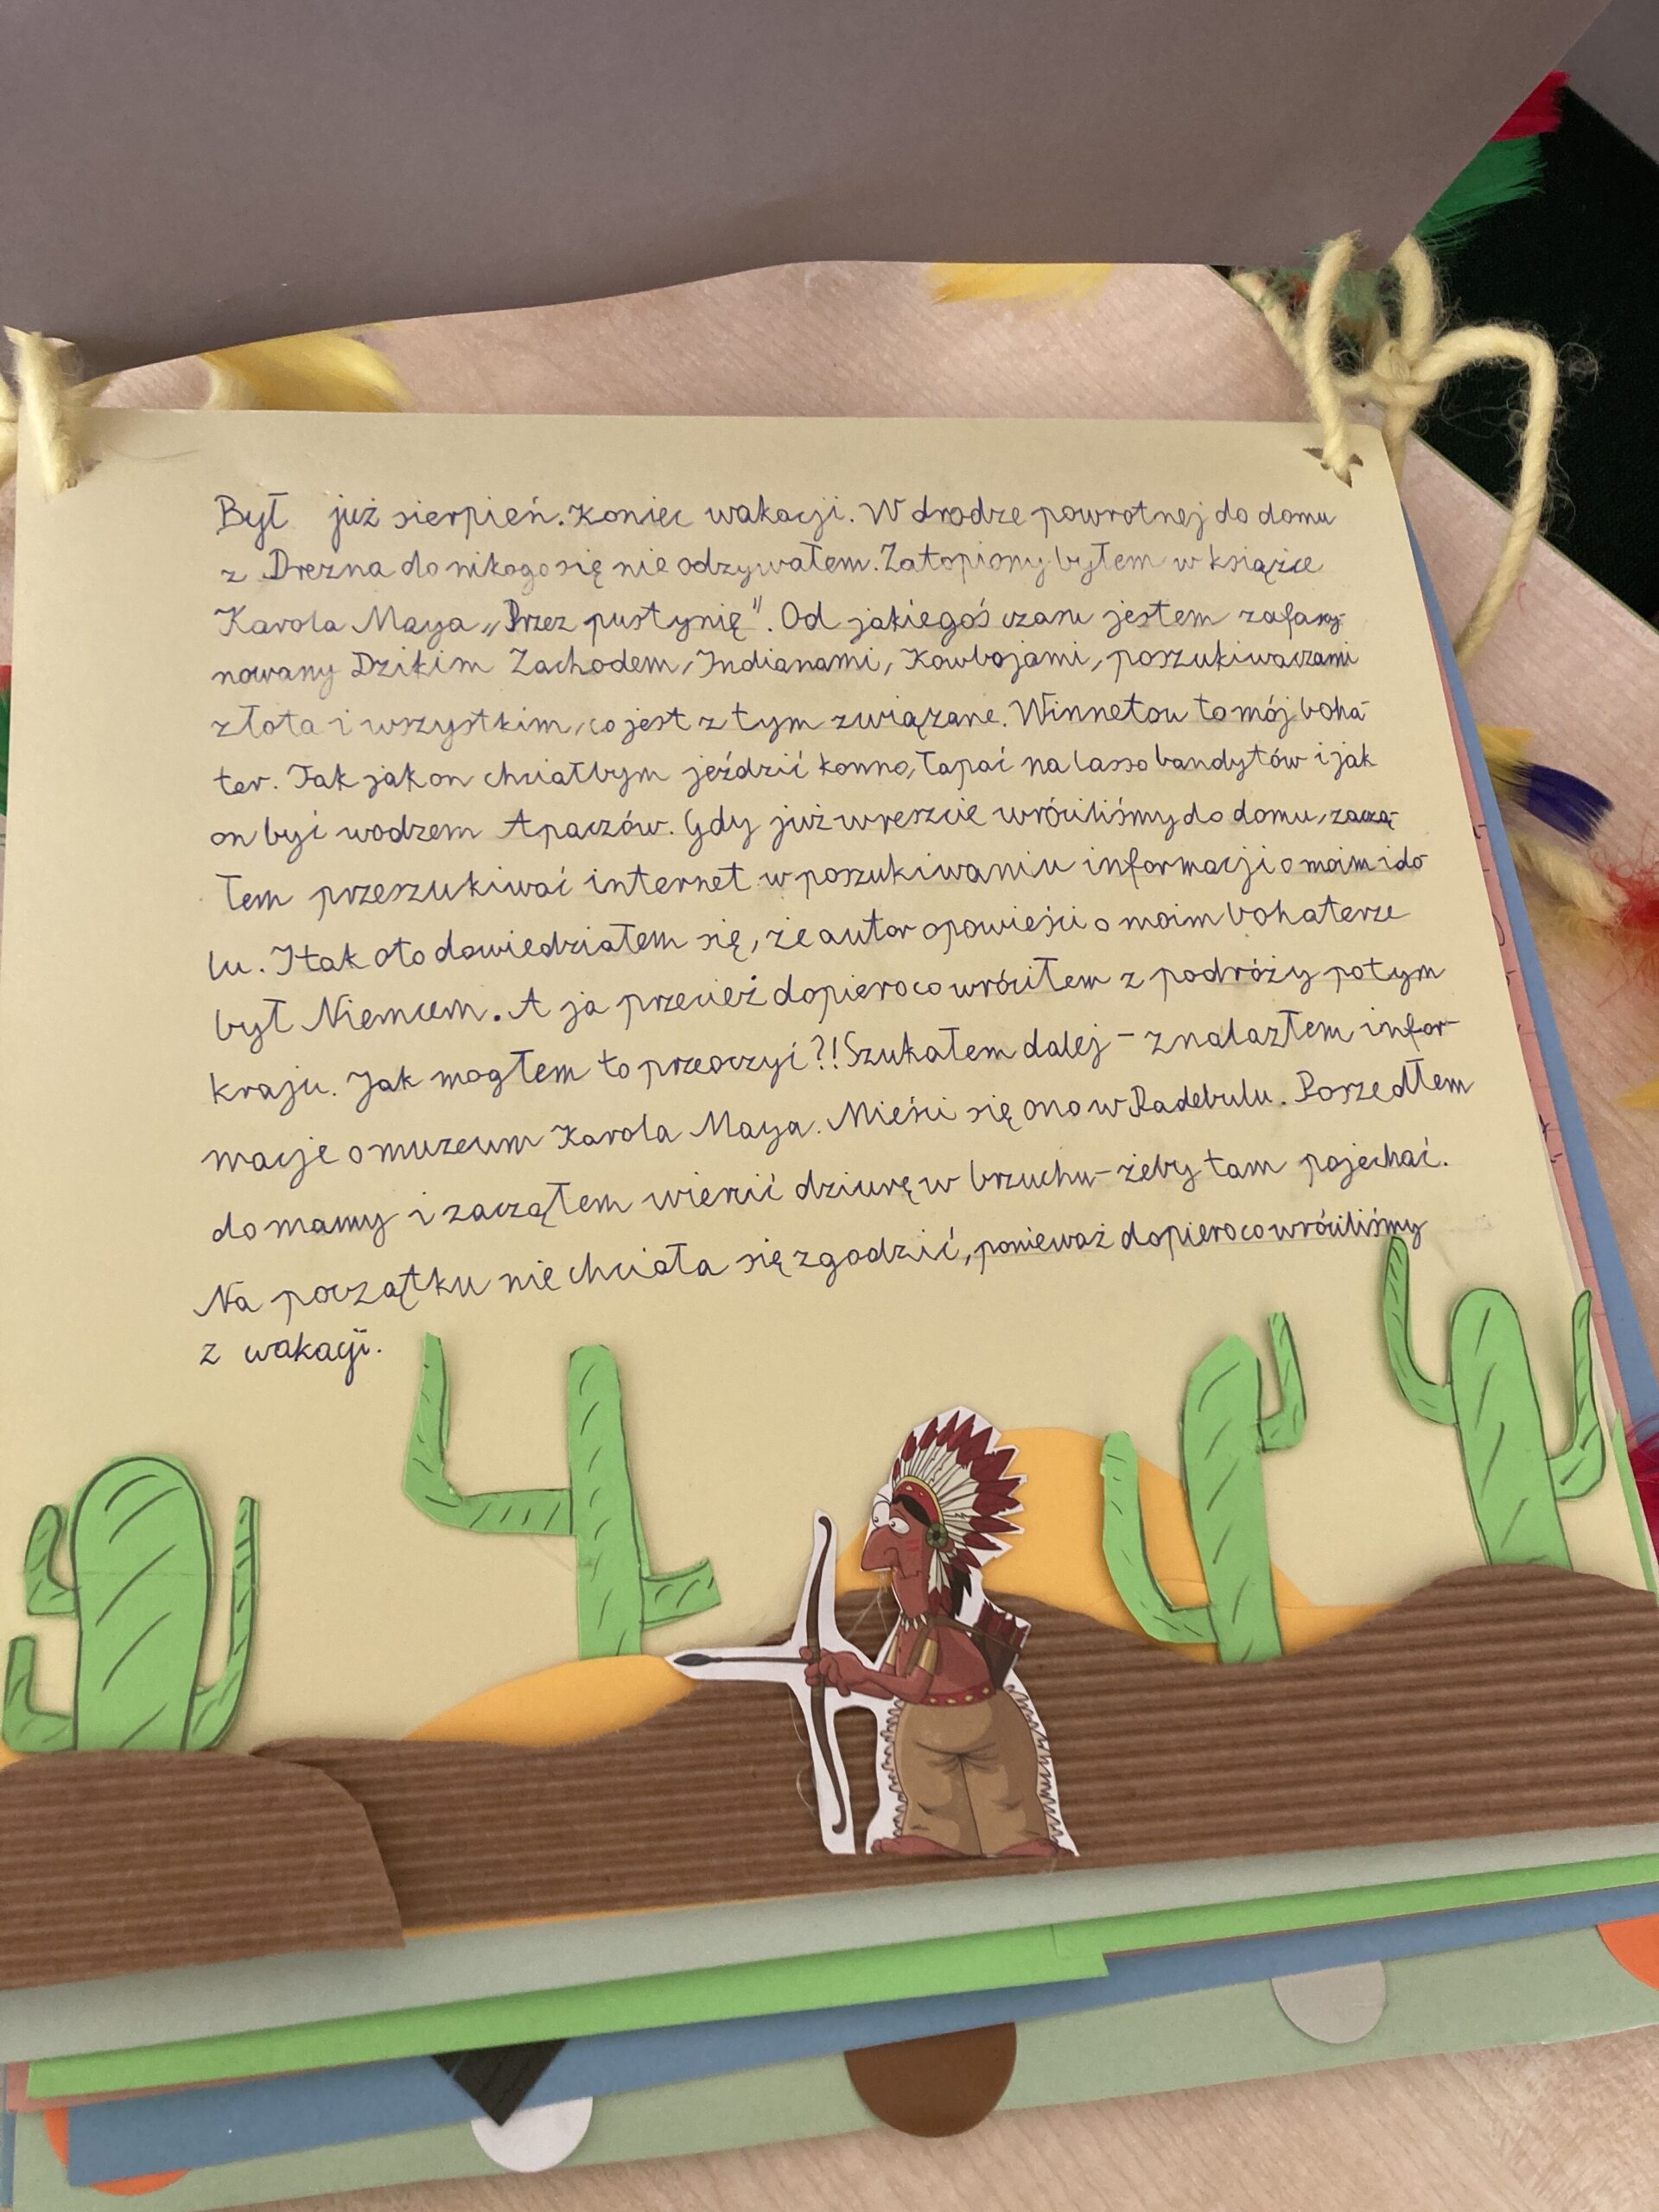 Był już sierpień. Koniec wakacji. W drodze powrotnej do domu
z Drezna do nikogo się nie odzywałem. Zatopiony byłem w książce
Karola Maya „Przez pustynię". Od jakiegoś czasu jestem zafascy-
nowany Dzikim Zachodem, Indianami, Kowbojami, poszukiwaczami
złota i wszystkim, co jest z tym związane. Winnetou to mój boha-
ter. Tak jak on chciałbym jeździć konno, łapać na lasso bandytów i jak
on być wodzem Apaczów. Gdy już wreszcie wróciliśmy do domu, zaczą-
łem przeszukiwać internet w poszukiwaniu informacji o moim ido
lu. I tak oto dowiedziałem się, że autor opowieści o moim bohaterze
był Niemcem. A ja przecież dopiero co wróciłem z podróży po tym
kraju. Jak mogłem to przeoczyć?! Szukałem dalej – znalazłem infor-
macje o muzeum Karola Maya. Mieści się ono w Radebulu. Poszedłem
do mamy i zacząłem wiercić dziurę w brzuchu – żeby tam pojechać.
Na początku nie chciała się zgodzić, ponieważ dopiero co wróciliśmy
z wakacji.